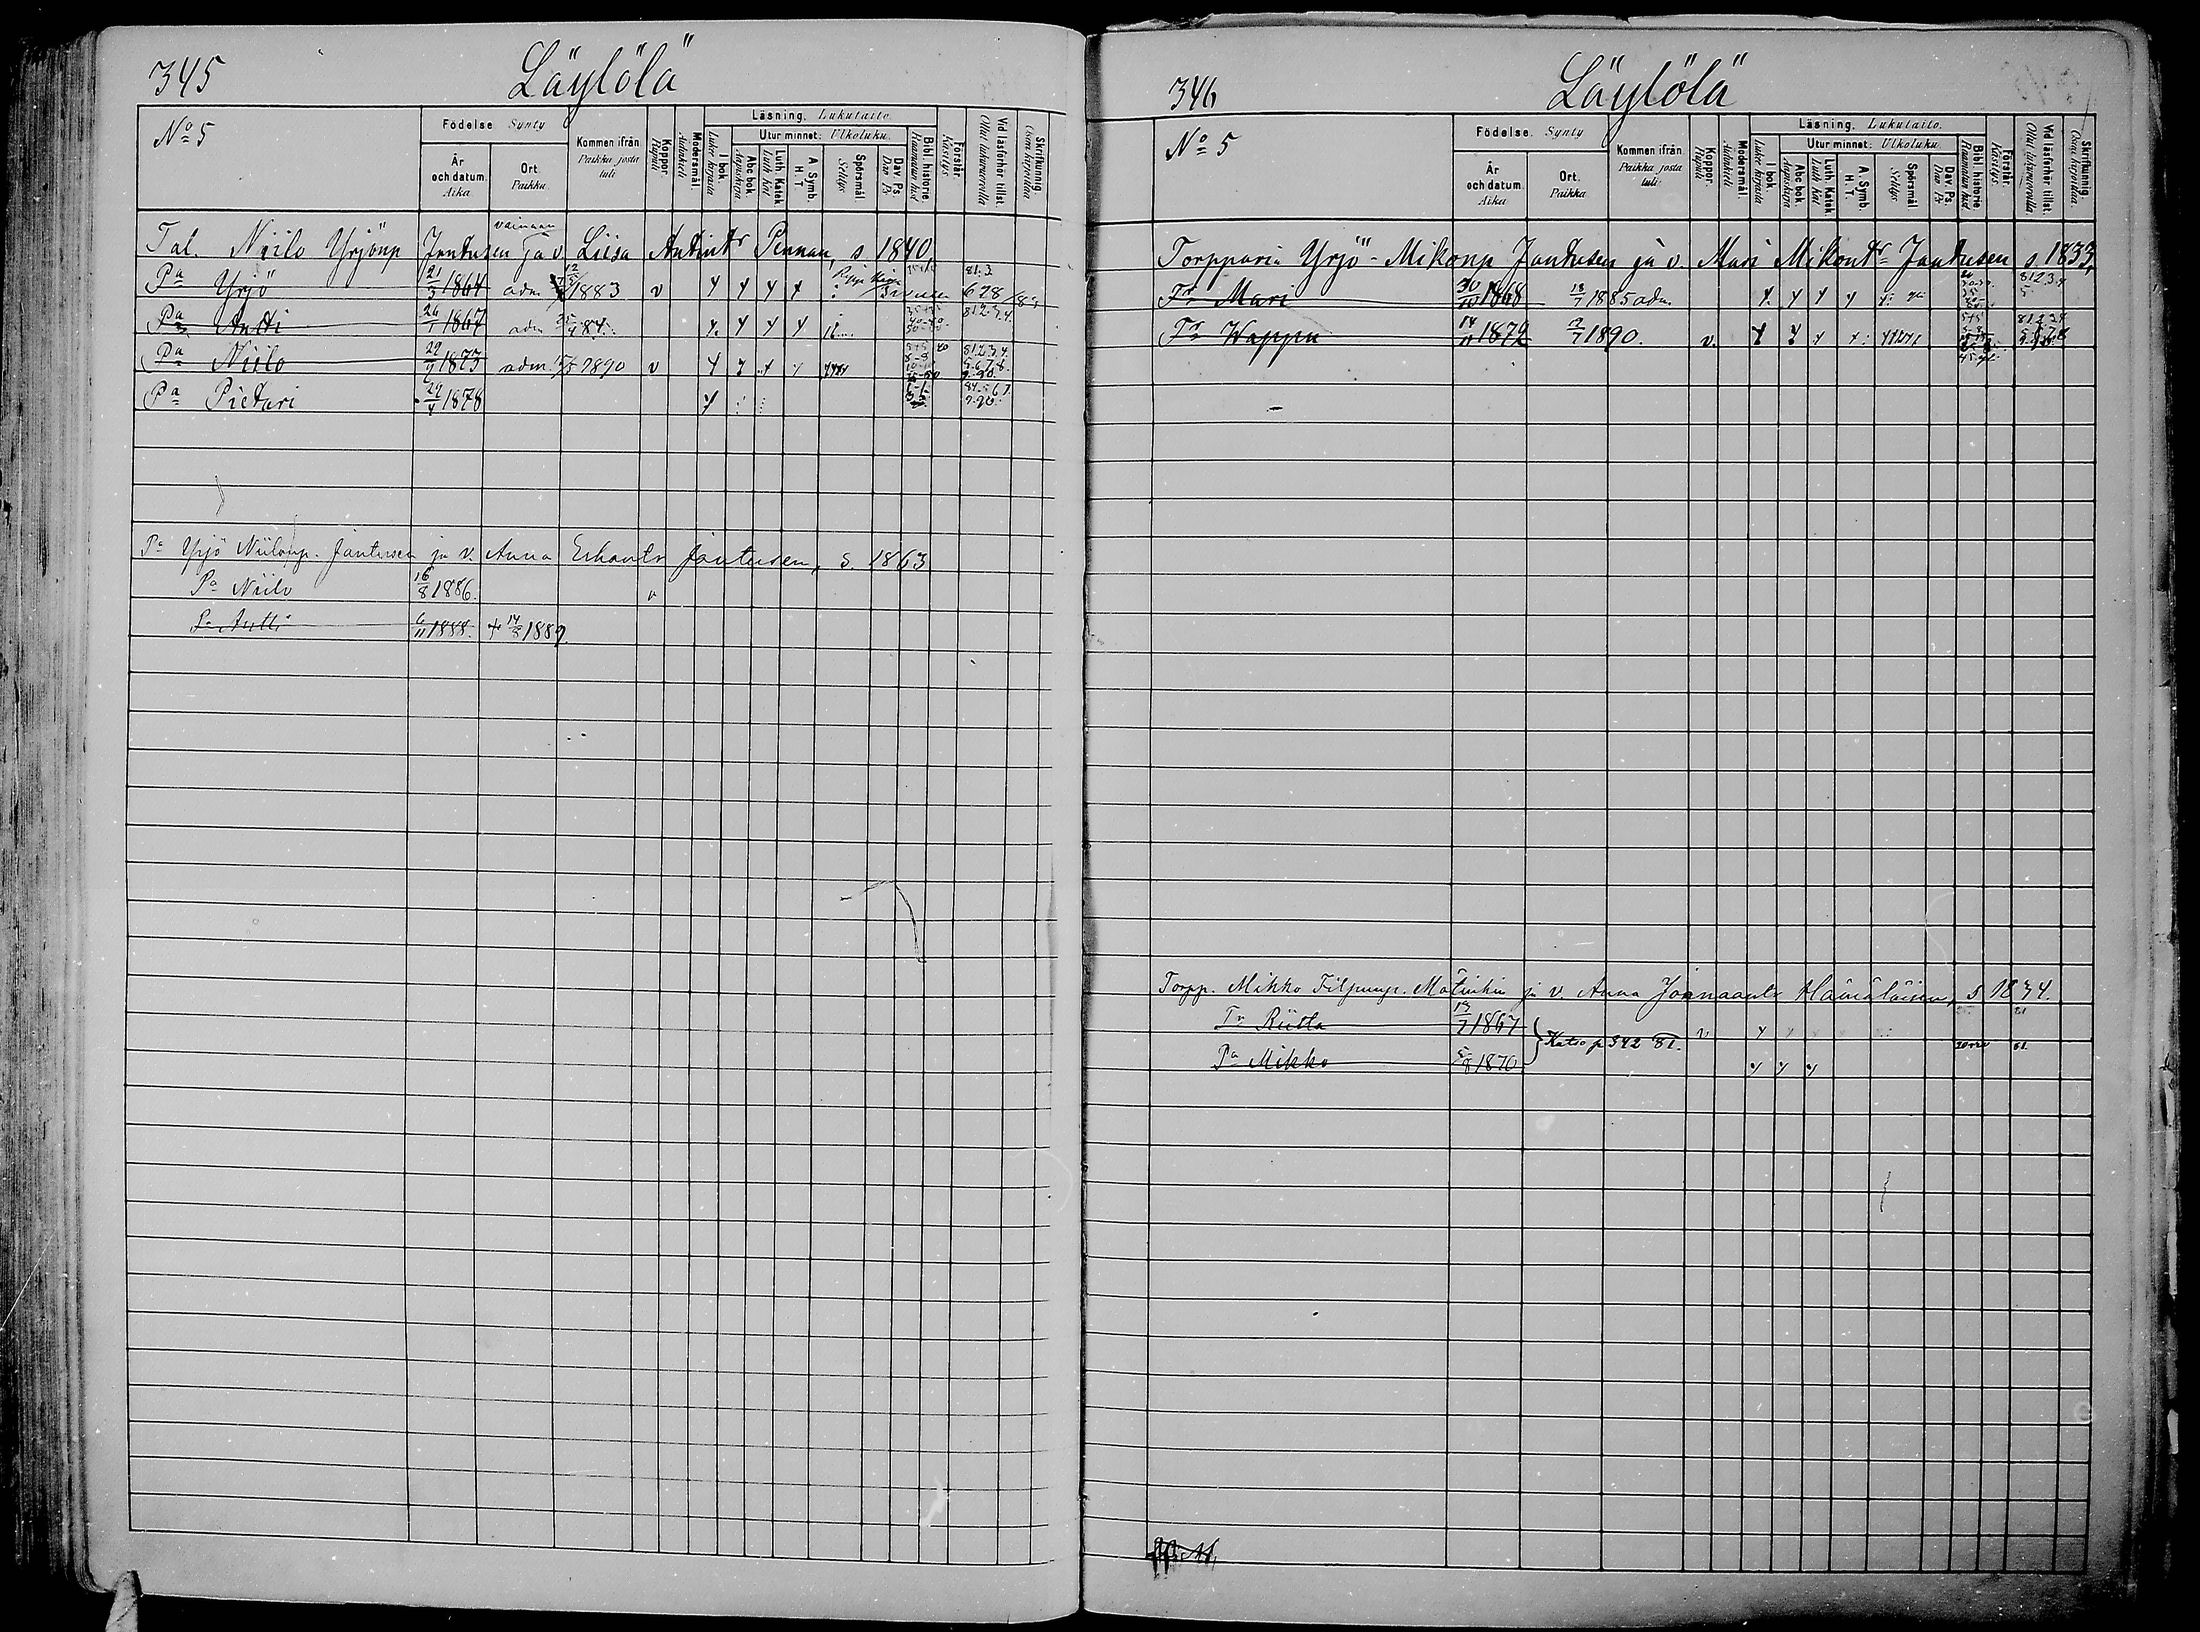 345 Läylölä
No 5
Födelse Synty
År och datum. Aika
Ort. Paikku
Kommen ifrån Paikka josta tuli
Koppor. Rupuli
Modersmål. Äidinkieli
Läsning. Lukutaito.
I bok. Lukee kirjasta
Utur minnet: Ulkoluku.
Abc bok. Aapiskirja
Luth. Katek. Luth. Kat.
A. Symb. H. T.
Spörsmål. Selitys
Dav. Ps. Dav. Ps.
Bibl. historie. Raamatun hist
Förstår. Käsitys
Vid läsförhör tillst. Ollut lukuvuorolla
Skrifkunnig. Osaa kirjoittaa
Tal. Niilo Yrjönp Jantusen ja vainaan v. Liisa Antint^r Pennan, s 1840,
P^a Yrjö 21/3 1864 adm 1883 v 81.3. 678
P^a Antti 26/1 1867 adm 84. 812.34.
P^a Niilo 29/9 1873 adm. 1890 v 81234. 5.6.7.8. 9.90.
P^a Pietari 29/4 1878 84.567. 9.90.
P^a Yrjö Niilonp. Jantusen ja v. Anna Erkontr Jantusen, s. 1863
P^a Niilo 16/8 1886. v
P^a Antti 6/11 1888. + 14/3 1889.
346 Läylölä
No 5
Födelse. Synty
År och datum. Aika
Ort. Paikka
Kommen ifrån Paikka josta tuli
Koppor. Rupuli
Modersmål. Äidinkieli
Läsning. Lukutaito.
I bok. Lukee kirjasta
Utur minnet: Ulkoluku.
Abc bok. Aapiskirja
Luth. Katek. Luth. Kat.
A. Symb. H. T.
Spörsmål Selitys
Dav. Ps. Dav. Ps
Bibl. historie. Raamatun hist
Förstår. Käsitys
Vid läsförhör tillst. Ollut lukuvuorolla
Skrifkunnig. Osaa kirjoittaa
Torpparin Yrjö Mikonp Jantusen ja v. Mari Mikont^r Jantusen s. 1833,
T^r Mari 30/10 1868 18/7 1885 adm. 8123.4 5
T^r Wappu 14/11 1872 1890. v. 81.2.3.4 5.6.7.8
Torpp. Mikko Filpunp. Mätinkin ja v. Anna Joonaantr Hämäläisen, s 1834.
T^r Riitta 13/7 1867 Katso p 342 81. v 81
P^a Mikko 5/8 1870 81.